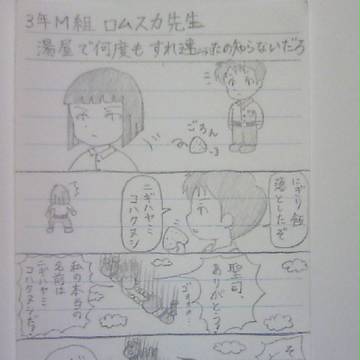 3年M組 ロムスカ先生
湯屋で何度もすれ違ったの知らないだろ
ごろん
にぎり飯
落としたぞ
ニギハヤミ
コハクヌシ
聖司、
ありがとう!
私の本当の
名前は
ニギハヤミ
コハクヌシだ!